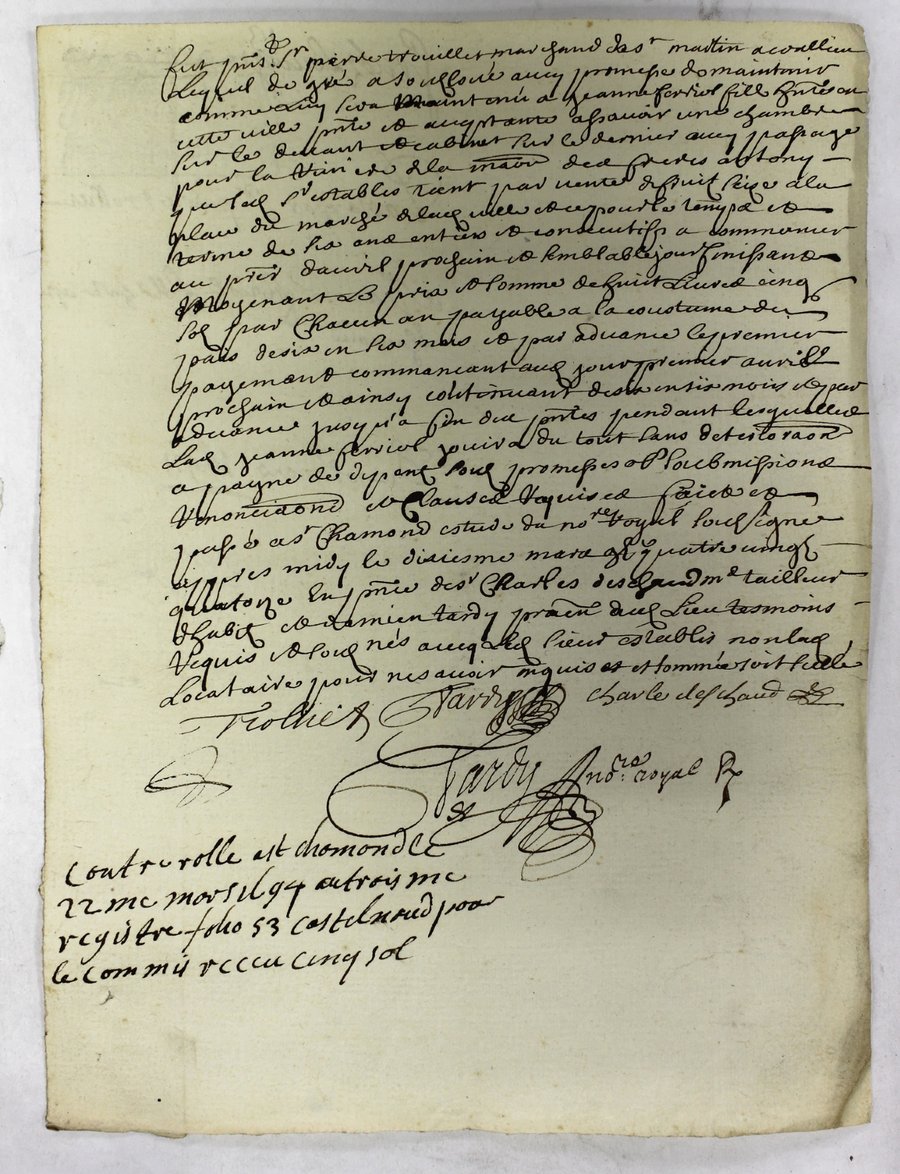 fut pnt Sr pierre trouillet marchand de st martin acoallieu
Lequel de gré a soulloué aucq promesse de maintenir
comme luy sera maintenu a jeanne ferriol fille hnte en
cette ville pnte et acceptante assavoir une chambre
sur le devant et cabinet sur le dernier aucq passage
pour la de la maon des freres antony
que led Sr establis tient par vente de fruit size a la
place du marché de lad ville et ce pour le temps et
terme de six ans entiers et consecutifs a commancer
au prer d'avril prochain et semblable jour finissant
moyenant le pris et somme de huit livres cinq
sol par chacun an payable a la coustume du
païs de six en six mois et par advance le premier
payement commancant aud jour premier avril
prochain et ainsy continuant de six en six mois et par
advance jusqu'a fin des pntes pendant lesquelles
Lad jeanne ferriol jouira du tout sans deterioraon
a payne de dypens soub promesses soubmissions
renonciaons et clauses requises faict et
passé a st Chamond estude du nore royal soubsigne
appres midy le dixiesme mars gbj quatre vingt
quatorze En pnce de sr Charles deschaud me tailleur
d'habit et damien tardy praen dud Lieu tesmoins
requis et soubnés aucq led sieur establis non lad
Locataire pour ne scavoir enquise et sommée soit scellé
Trollliet Tardy charle deschaud
Tardy nore royal
Controrolle a st chomond le
22 me mors 1694 au troisme
registre folio 53 castelnoud pour
le commis receu cinq sol